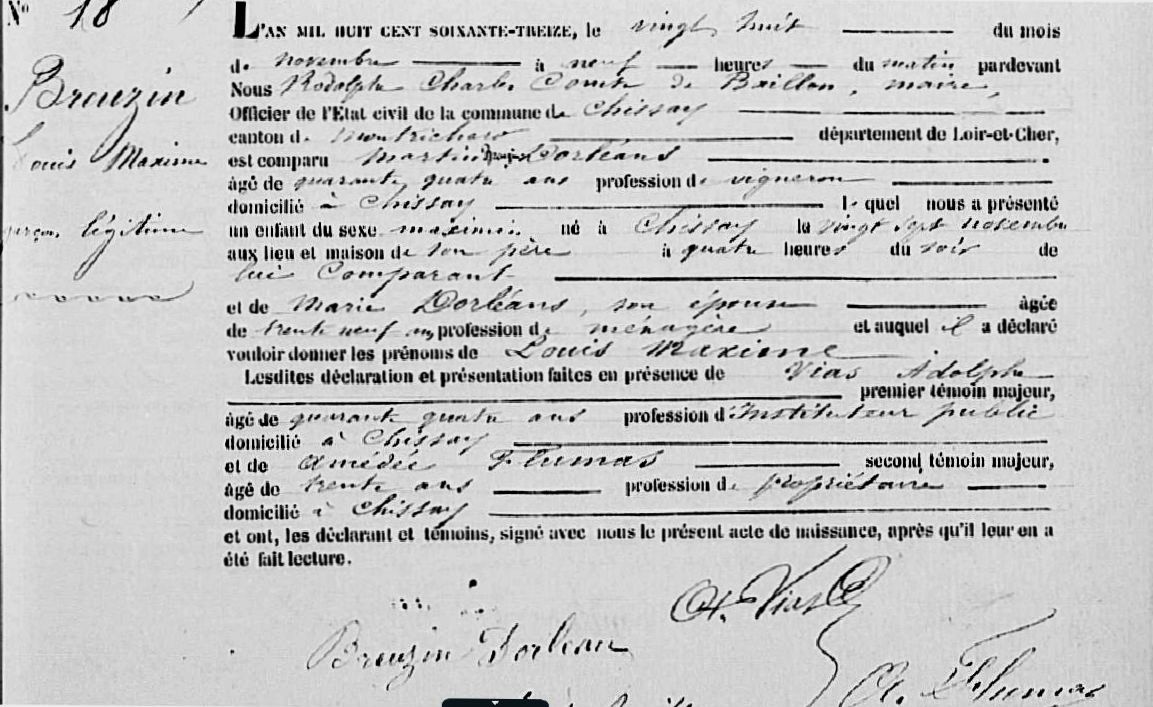 N° 18
Breuzin
Louis Maxime
garçon légitime
L'AN MIL HUIT CENT SOIXANTE-TREIZE, le vingt huit du mois
de novembre à neuf heures du matin pardevant
Nous Rodolphe Charles Comte de Baillon, maire,
Officier de l'Etat civil de la commune de Chissay
canton de Montrichard département de Loir-et-Cher,
est comparu Martin Dorléans
âgé de quarante quatre ans profession de vigneron
domicilié à Chissay le quel nous a présenté
un enfant du sexe masculin né à Chissay le vingt sept novembre
aux lieu et maison de son père à quatre heures du soir de
lui Comparant
et de Marie Dorléans, son épouse âgée
de trente neuf ans, profession de ménagère et auquel il a déclaré
vouloir donner les prénoms de Louis Maxime
Lesdites déclaration et présentation faites en présence de Vias Adolphe
premier témoin majeur,
âgé de quarante quatre ans profession d'Instituteur public
domicilié à Chissay
et de Amédée Flumas second témoin majeur,
âgé de trente ans profession de propriétaire
domicilié à Chissay
et ont, les déclarant et témoins, signé avec nous le présent acte de naissance, après qu'il leur en a
été fait lecture.
A. Vias
Breuzin Dorleans
A. Flumas